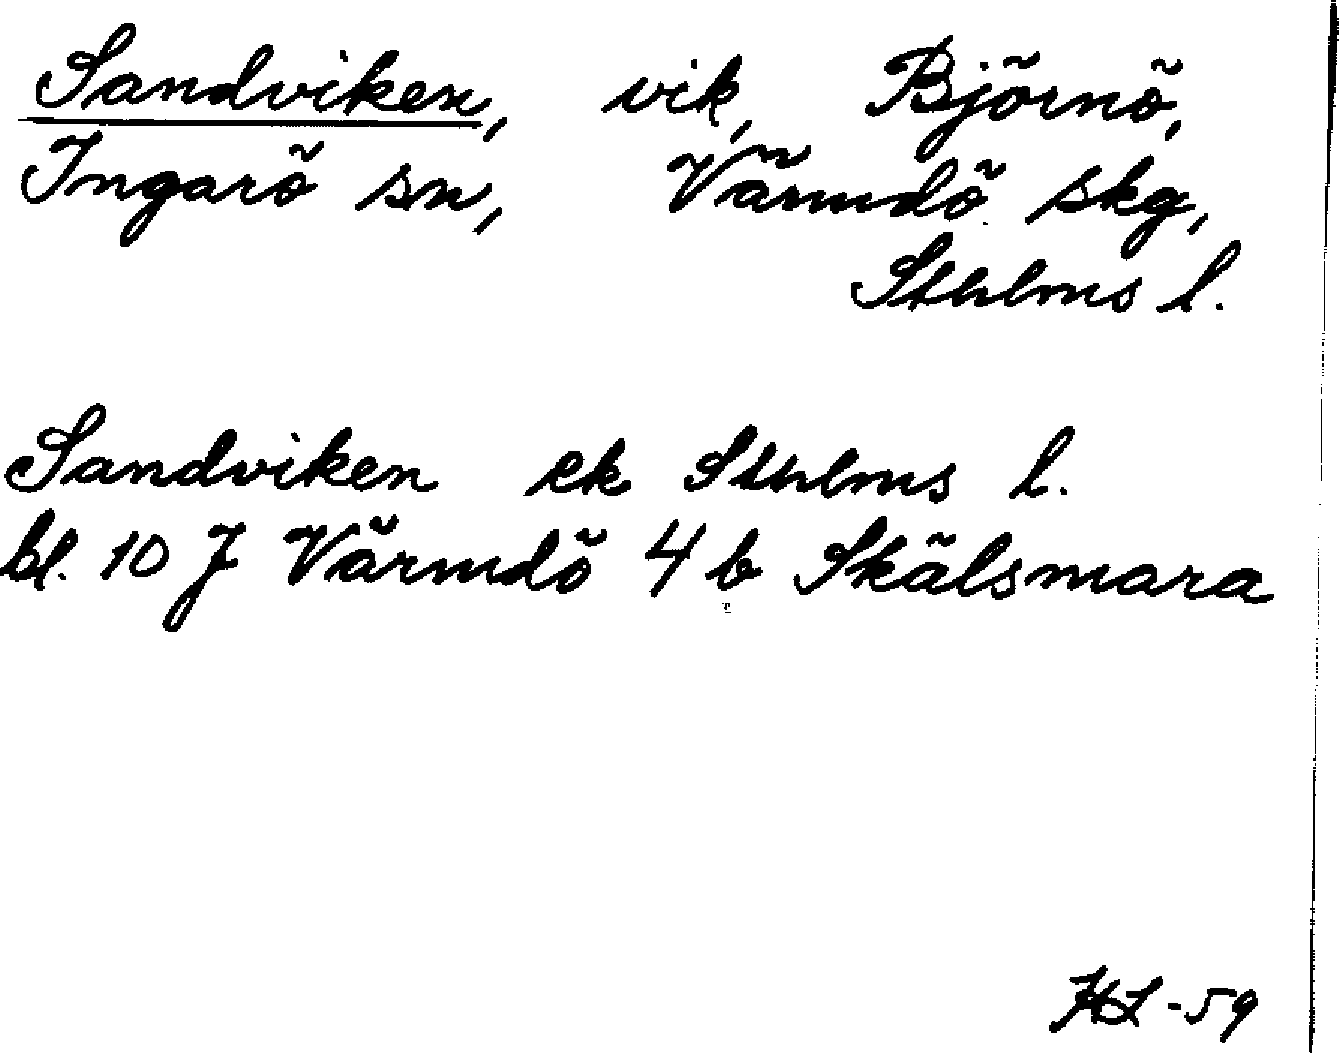 Sandviken, vik, Björnö,
Ingarö sn, Värmdö skg,
Sthlms l.
Sandviken ek Sthlms l.
bl. 10 J Värmdö 4 b Skälsmara
HL-59